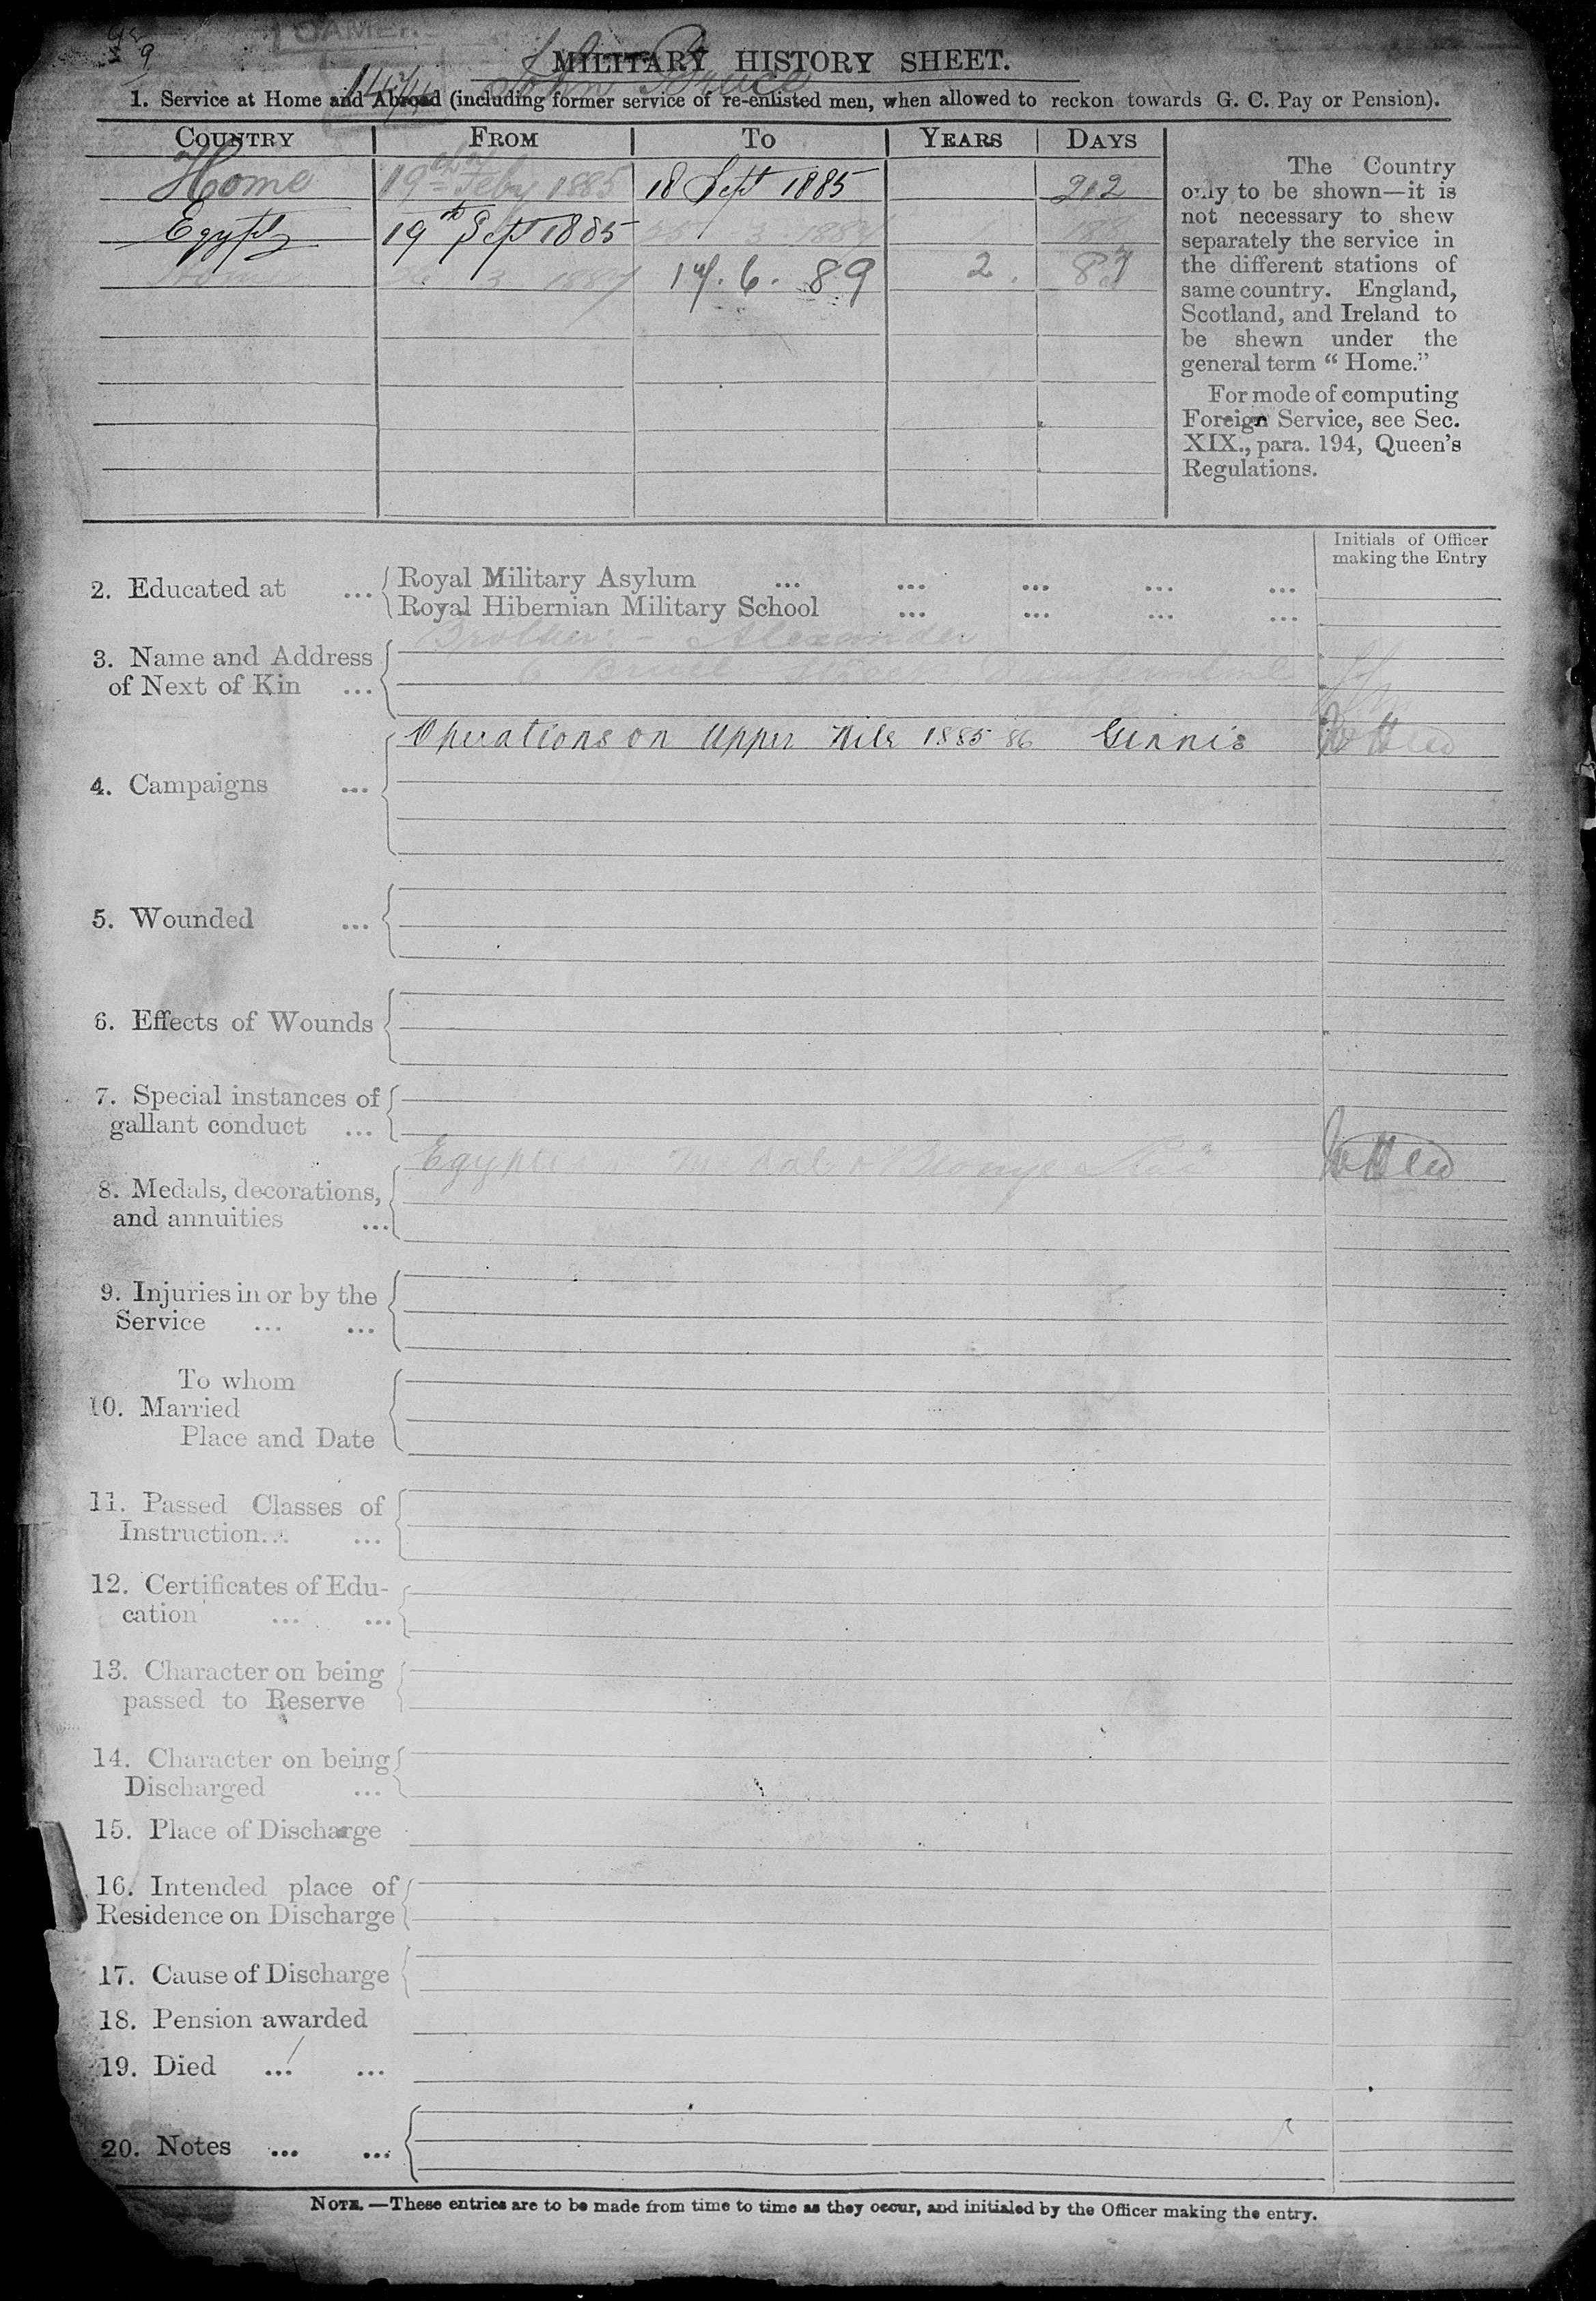 MILITARY HISTORY SHEET.
John Bruce
1. Service at Home and Abroad (including former service of re-enlisted men, when allowed to reckon towards G. C. Pay or Pension).
COUNTRY FROM TO YEARS DAYS
Home 19th Feby 1885 18 Sept 1885 212
Egypt 19th Sept 1885 3 1887
Home 3 1887 14. 6. 89 2.
The Country
only to be shown—it is
not necessary to shew
separately the service in
the different stations of
same country. England,
Scotland, and Ireland to
be shewn under the
general term "Home."
For mode of computing
Foreign Service, see Sec.
XIX., para. 194, Queen's
Regulations.
Initials of Officer
making the Entry
2. Educated at ... Royal Military Asylum ... ... ... ... ...
Royal Hibernian Military School ... ... ... ...
3. Name and Address
of Next of Kin ...
Brother - Alexander
6 Street Dunfermline
4. Campaigns ...
Operations on Upper Nile 1885 86 Ginnis
5. Wounded ...
6. Effects of Wounds
7. Special instances of
gallant conduct ...
8. Medals, decorations,
and annuities ...
Egyptian Medal & Bronze Star
9. Injuries in or by the
Service ... ...
To whom
10. Married
Place and Date
11. Passed Classes of
Instruction... ...
12. Certificates of Edu-
cation ... ...
13. Character on being
passed to Reserve
14. Character on being
Discharged ...
15. Place of Discharge
16. Intended place of
Residence on Discharge
17. Cause of Discharge
18. Pension awarded
19. Died ... ...
20. Notes ... ...
NOTE.—These entries are to be made from time to time as they occur, and initialed by the Officer making the entry.